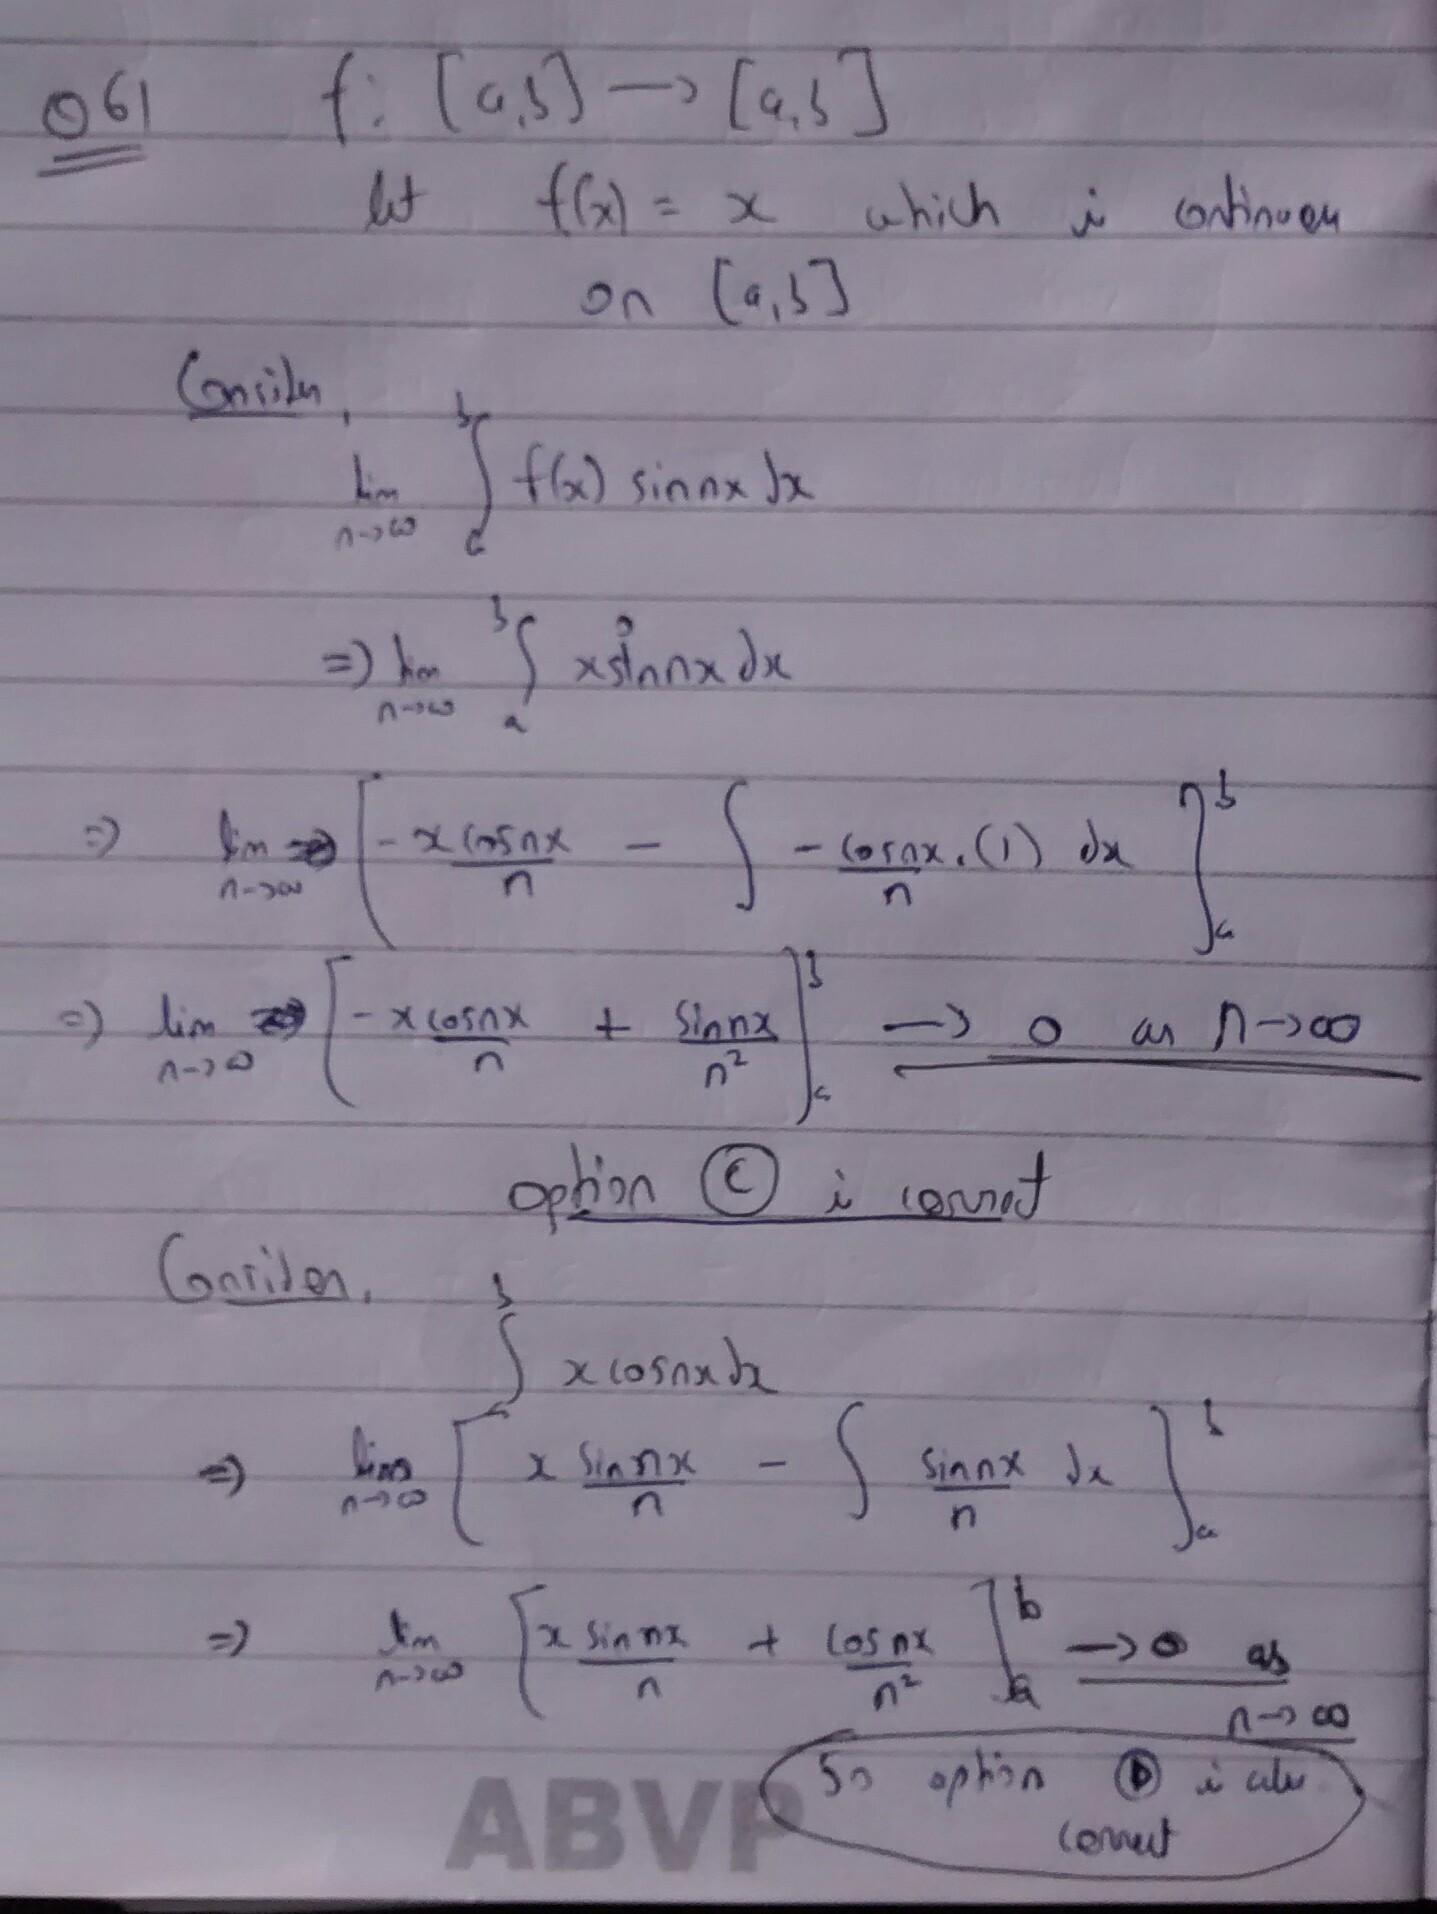 Q61 f: [a,b] → [a,b]
let f(x) = x which is continuous
on [a,b]
Consider,
lim n→∞ ∫_a^b f(x) sinnx dx
⇒ lim n→∞ ∫_a^b x sinnx dx
⇒ lim n→∞ [ -x cosnx/n - ∫ -cosnx/n .(1) dx ]_a^b
⇒ lim n→∞ [ -x cosnx/n + sinnx/n² ]_a^b → 0 as n→∞
option (C) is correct
Consider,
∫_a^b x cosnx dx
⇒ lim n→∞ [ x sinnx/n - ∫ sinnx/n dx ]_a^b
⇒ lim n→∞ [ x sinnx/n + cosnx/n² ]_a^b → 0 as
n→∞
So option (D) is also
correct
ABVP